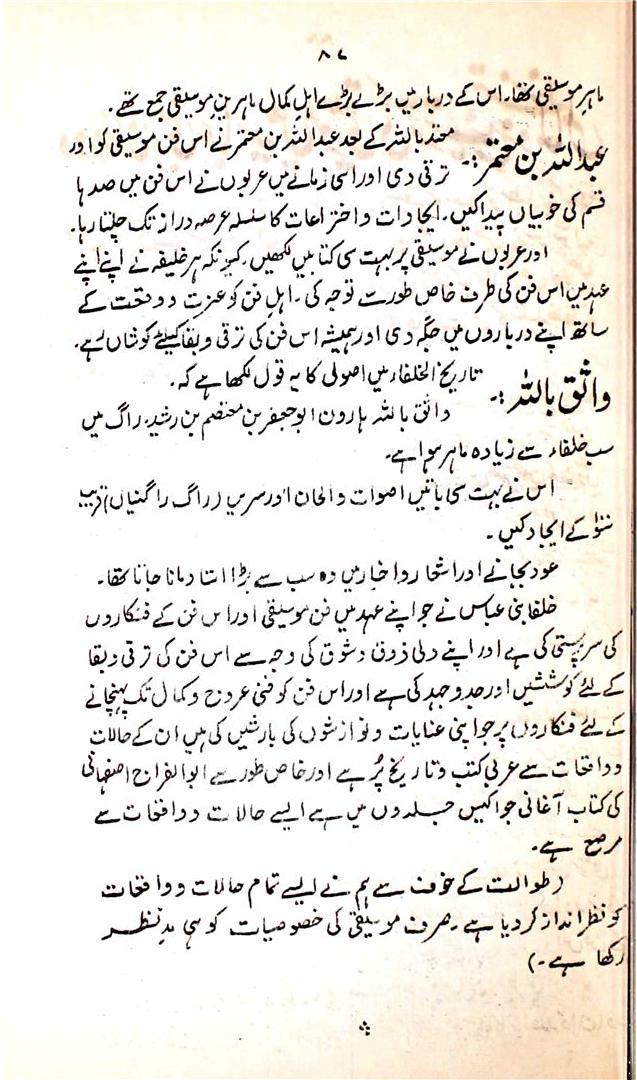 ۸۷
ماہرِ موسیقی تھا۔ اس کے دربار میں بڑے بڑے اہلِ کمال ماہرینِ موسیقی جمع تھے۔
عبداللہ بن معتمر :۔ معتمد باللہ کے بعد عبداللہ بن معتمر نے اس فن موسیقی کو اور
ترقی دی اور اسی زمانے میں عربوں نے اس فن میں صدہا
قسم کی خوبیاں پیدا کیں۔ ایجادات و اختراعات کا سلسلہ عرصہ دراز تک چلتا رہا۔
اور عربوں نے موسیقی پر بہت سی کتابیں لکھیں۔ کیونکہ ہر خلیفہ نے اپنے اپنے
عہد میں اس فن کی طرف خاص طور سے توجہ کی۔ اہلِ فن کو عزت و وقعت کے
ساتھ اپنے درباروں میں جگہ دی اور ہمیشہ اس فن کی ترقی و بقا کیلئے کوشاں رہے۔
واثق باللہ :۔ تاریخ الخلفاء میں اصولی کا یہ قول لکھا ہے کہ۔
واثق باللہ ہارون ابو جعفر بن معتصم بن رشید۔ راگ میں
سب خلفاء سے زیادہ ماہر ہوا ہے۔
اس نے بہت سی باتیں اصوات و الحان اور سریں (راگ راگنیاں) قریب
سَو کے ایجاد کیں۔
عود بجانے اور اشعار و اخبار میں وہ سب سے بڑا استاد مانا جاتا تھا۔
خلفا بنی عباس نے جو اپنے عہد میں فن موسیقی اور اس فن کے فنکاروں
کی سرپرستی کی ہے اور اپنے دلی ذوق و شوق کی وجہ سے اس فن کی ترقی و بقا
کے لئے کوششیں اور جد و جہد کی ہے اور اس فن کو فنی عروج و کمال تک پہنچانے
کے لئے فنکاروں پر جو اپنی عنایات و نوازشوں کی بارشیں کی ہیں ان کے حالات
و واقعات سے عربی کتب و تاریخ پُر ہے اور خاص طور سے ابو الفراح اصفہانی
کی کتاب آغانی جو اکیس جلدوں میں ہے ایسے حالات و واقعات سے
مرصع ہے۔
(طوالت کے خوف سے ہم نے ایسے تمام حالات و واقعات
کو نظر انداز کر دیا ہے۔ صرف موسیقی کی خصوصیات کو ہی مدِ نظر
رکھا ہے۔)